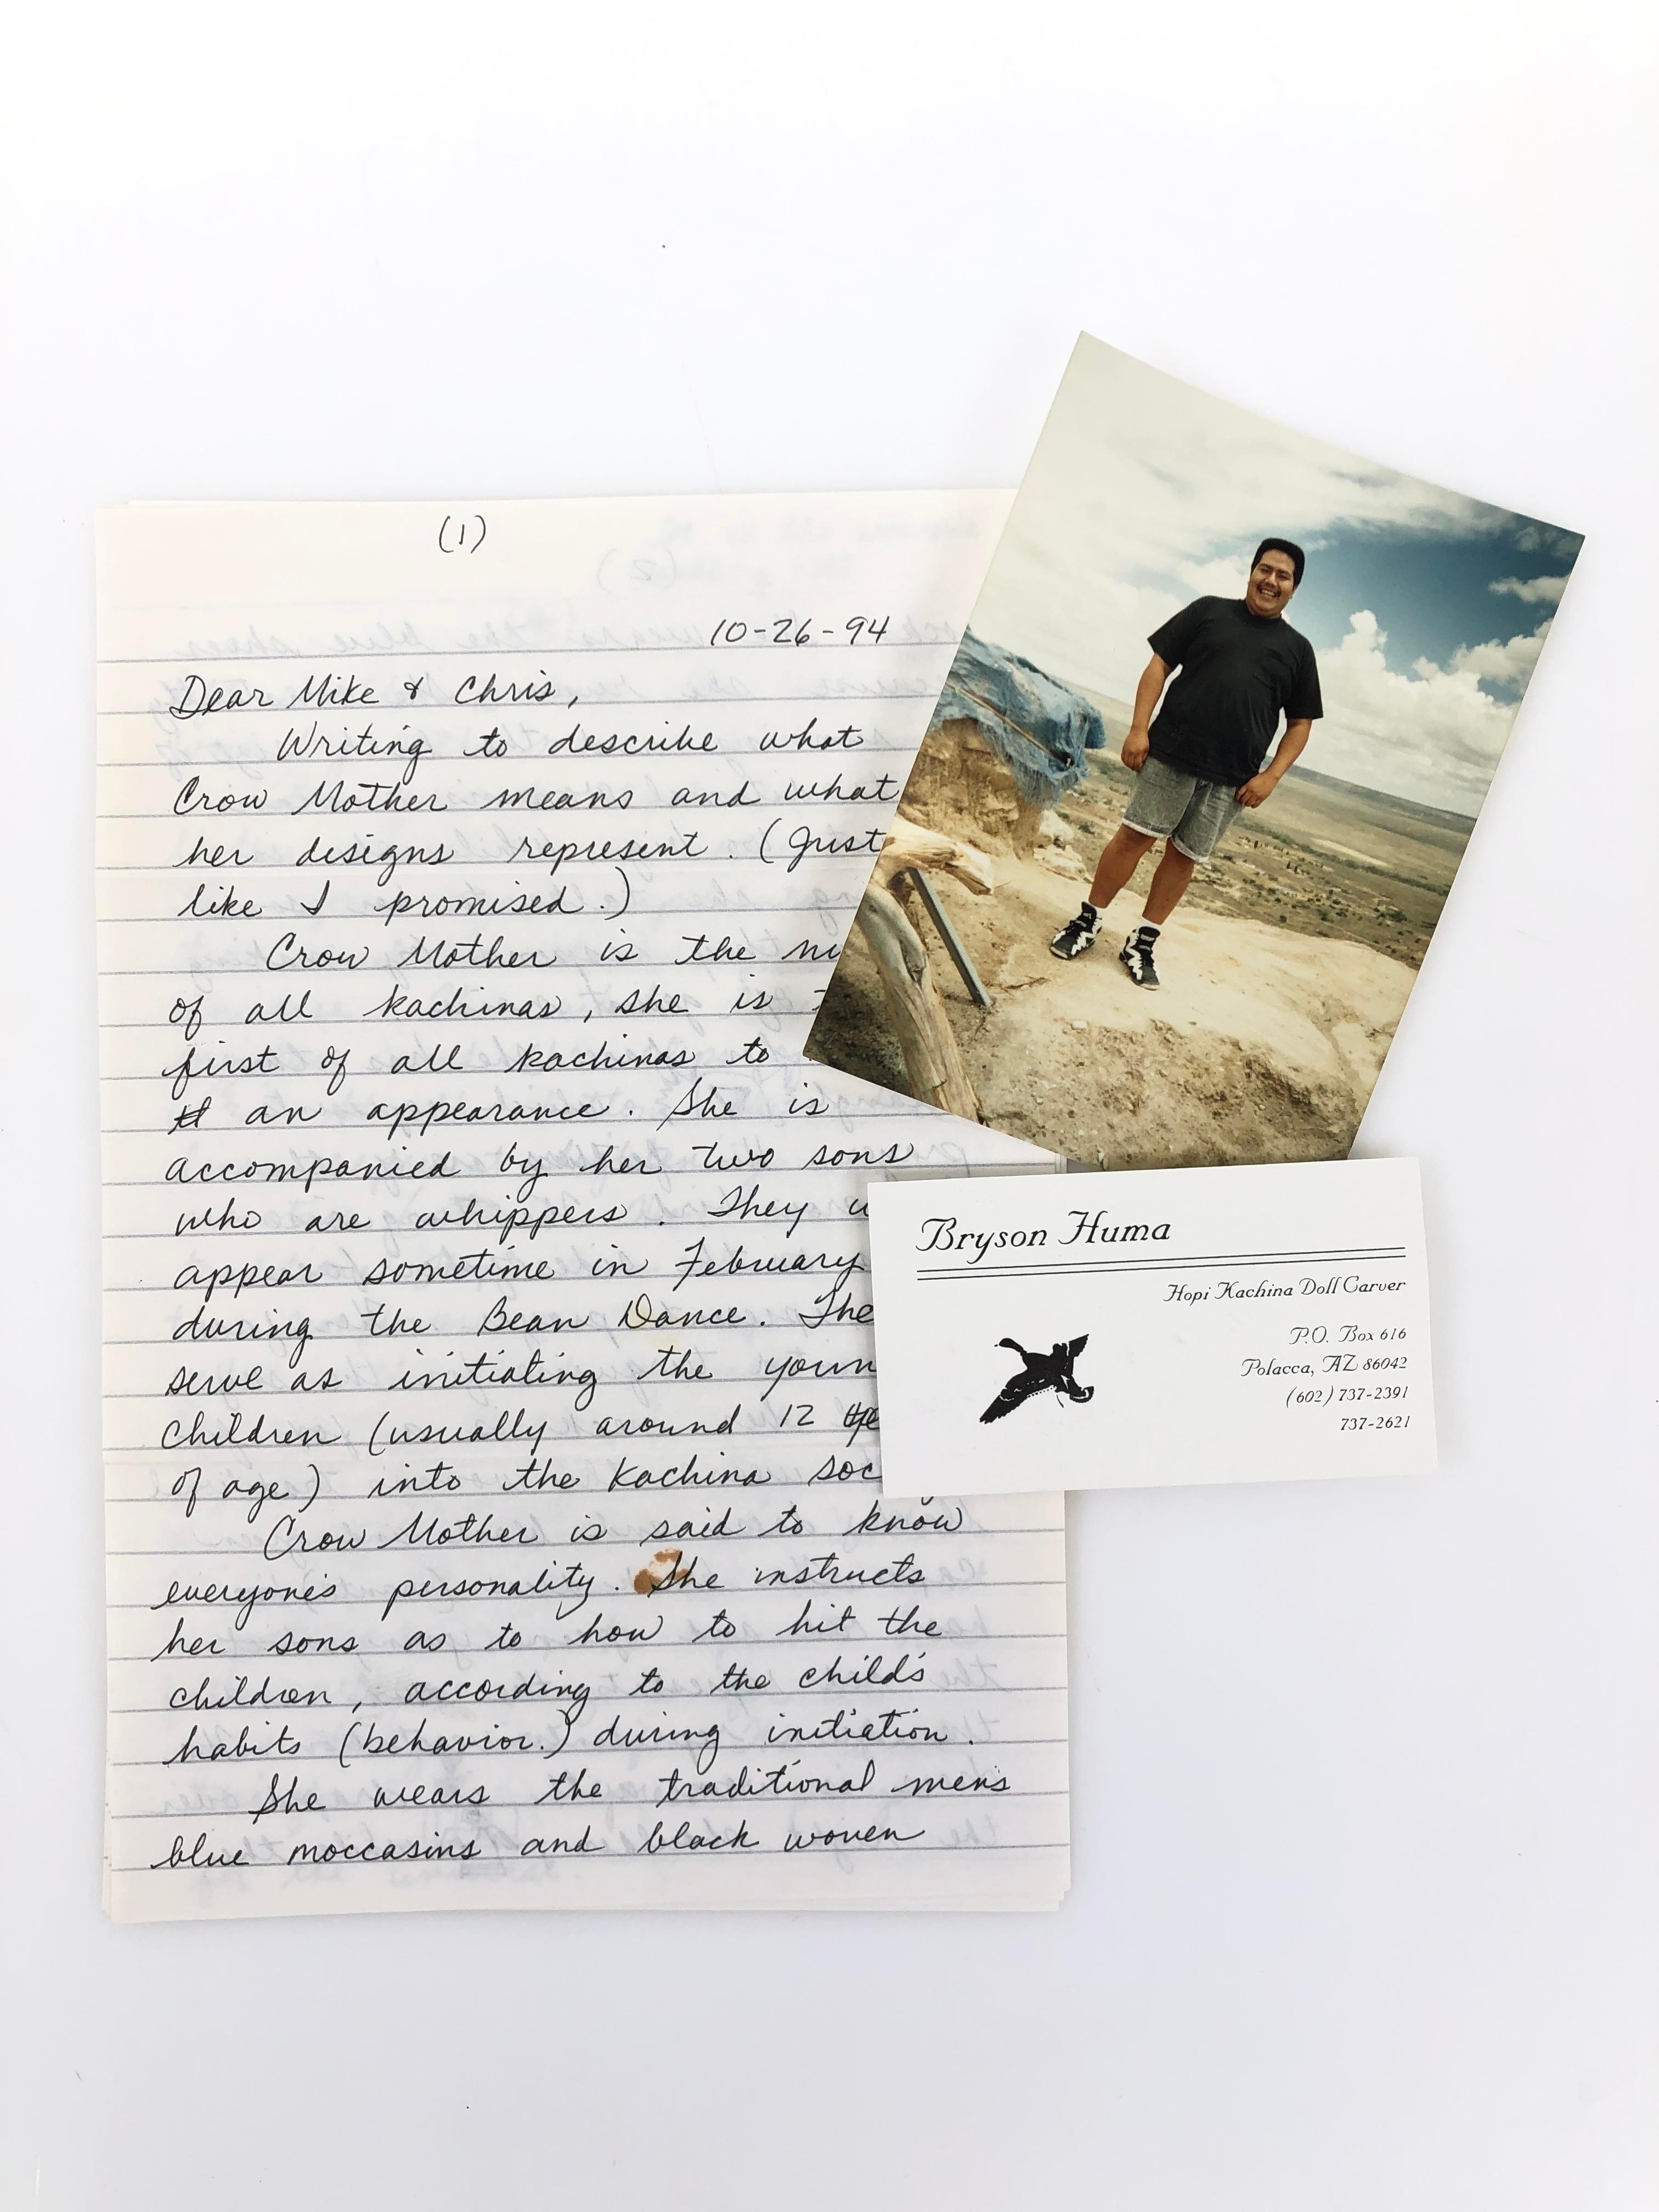 (1)
10-26-94
Dear Mike & Chris,
Writing to describe what
Crow Mother means and what
her designs represent. (Just
like I promised.)
Crow Mother is the
of all kachinas, she is
first of all kachinas to
an appearance. She is
accompanied by her two sons
who are whippers. They
appear sometime in February
during the Bean Dance. The
serve as initiating the youn
children (usually around 12
of age) into the kachina soc
Crow Mother is said to know
everyone's personality. She instructs
her sons as to how to hit the
children, according to the child's
habits (behavior.) during initiation.
She wears the traditional mens
blue moccasins and black woven
Bryson Huma
Hopi Kachina Doll Carver
P.O. Box 616
Polacca, AZ 86042
(602) 737-2391
737-2621